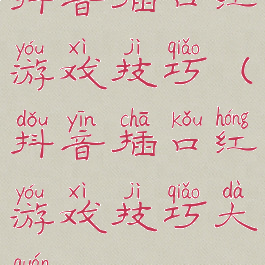 抖音插口红
yóu xì jì qiǎo
游戏技巧（
dǒu yīn chā kǒu hóng
抖音插口红
yóu xì jì qiǎo dà
游戏技巧大
quán